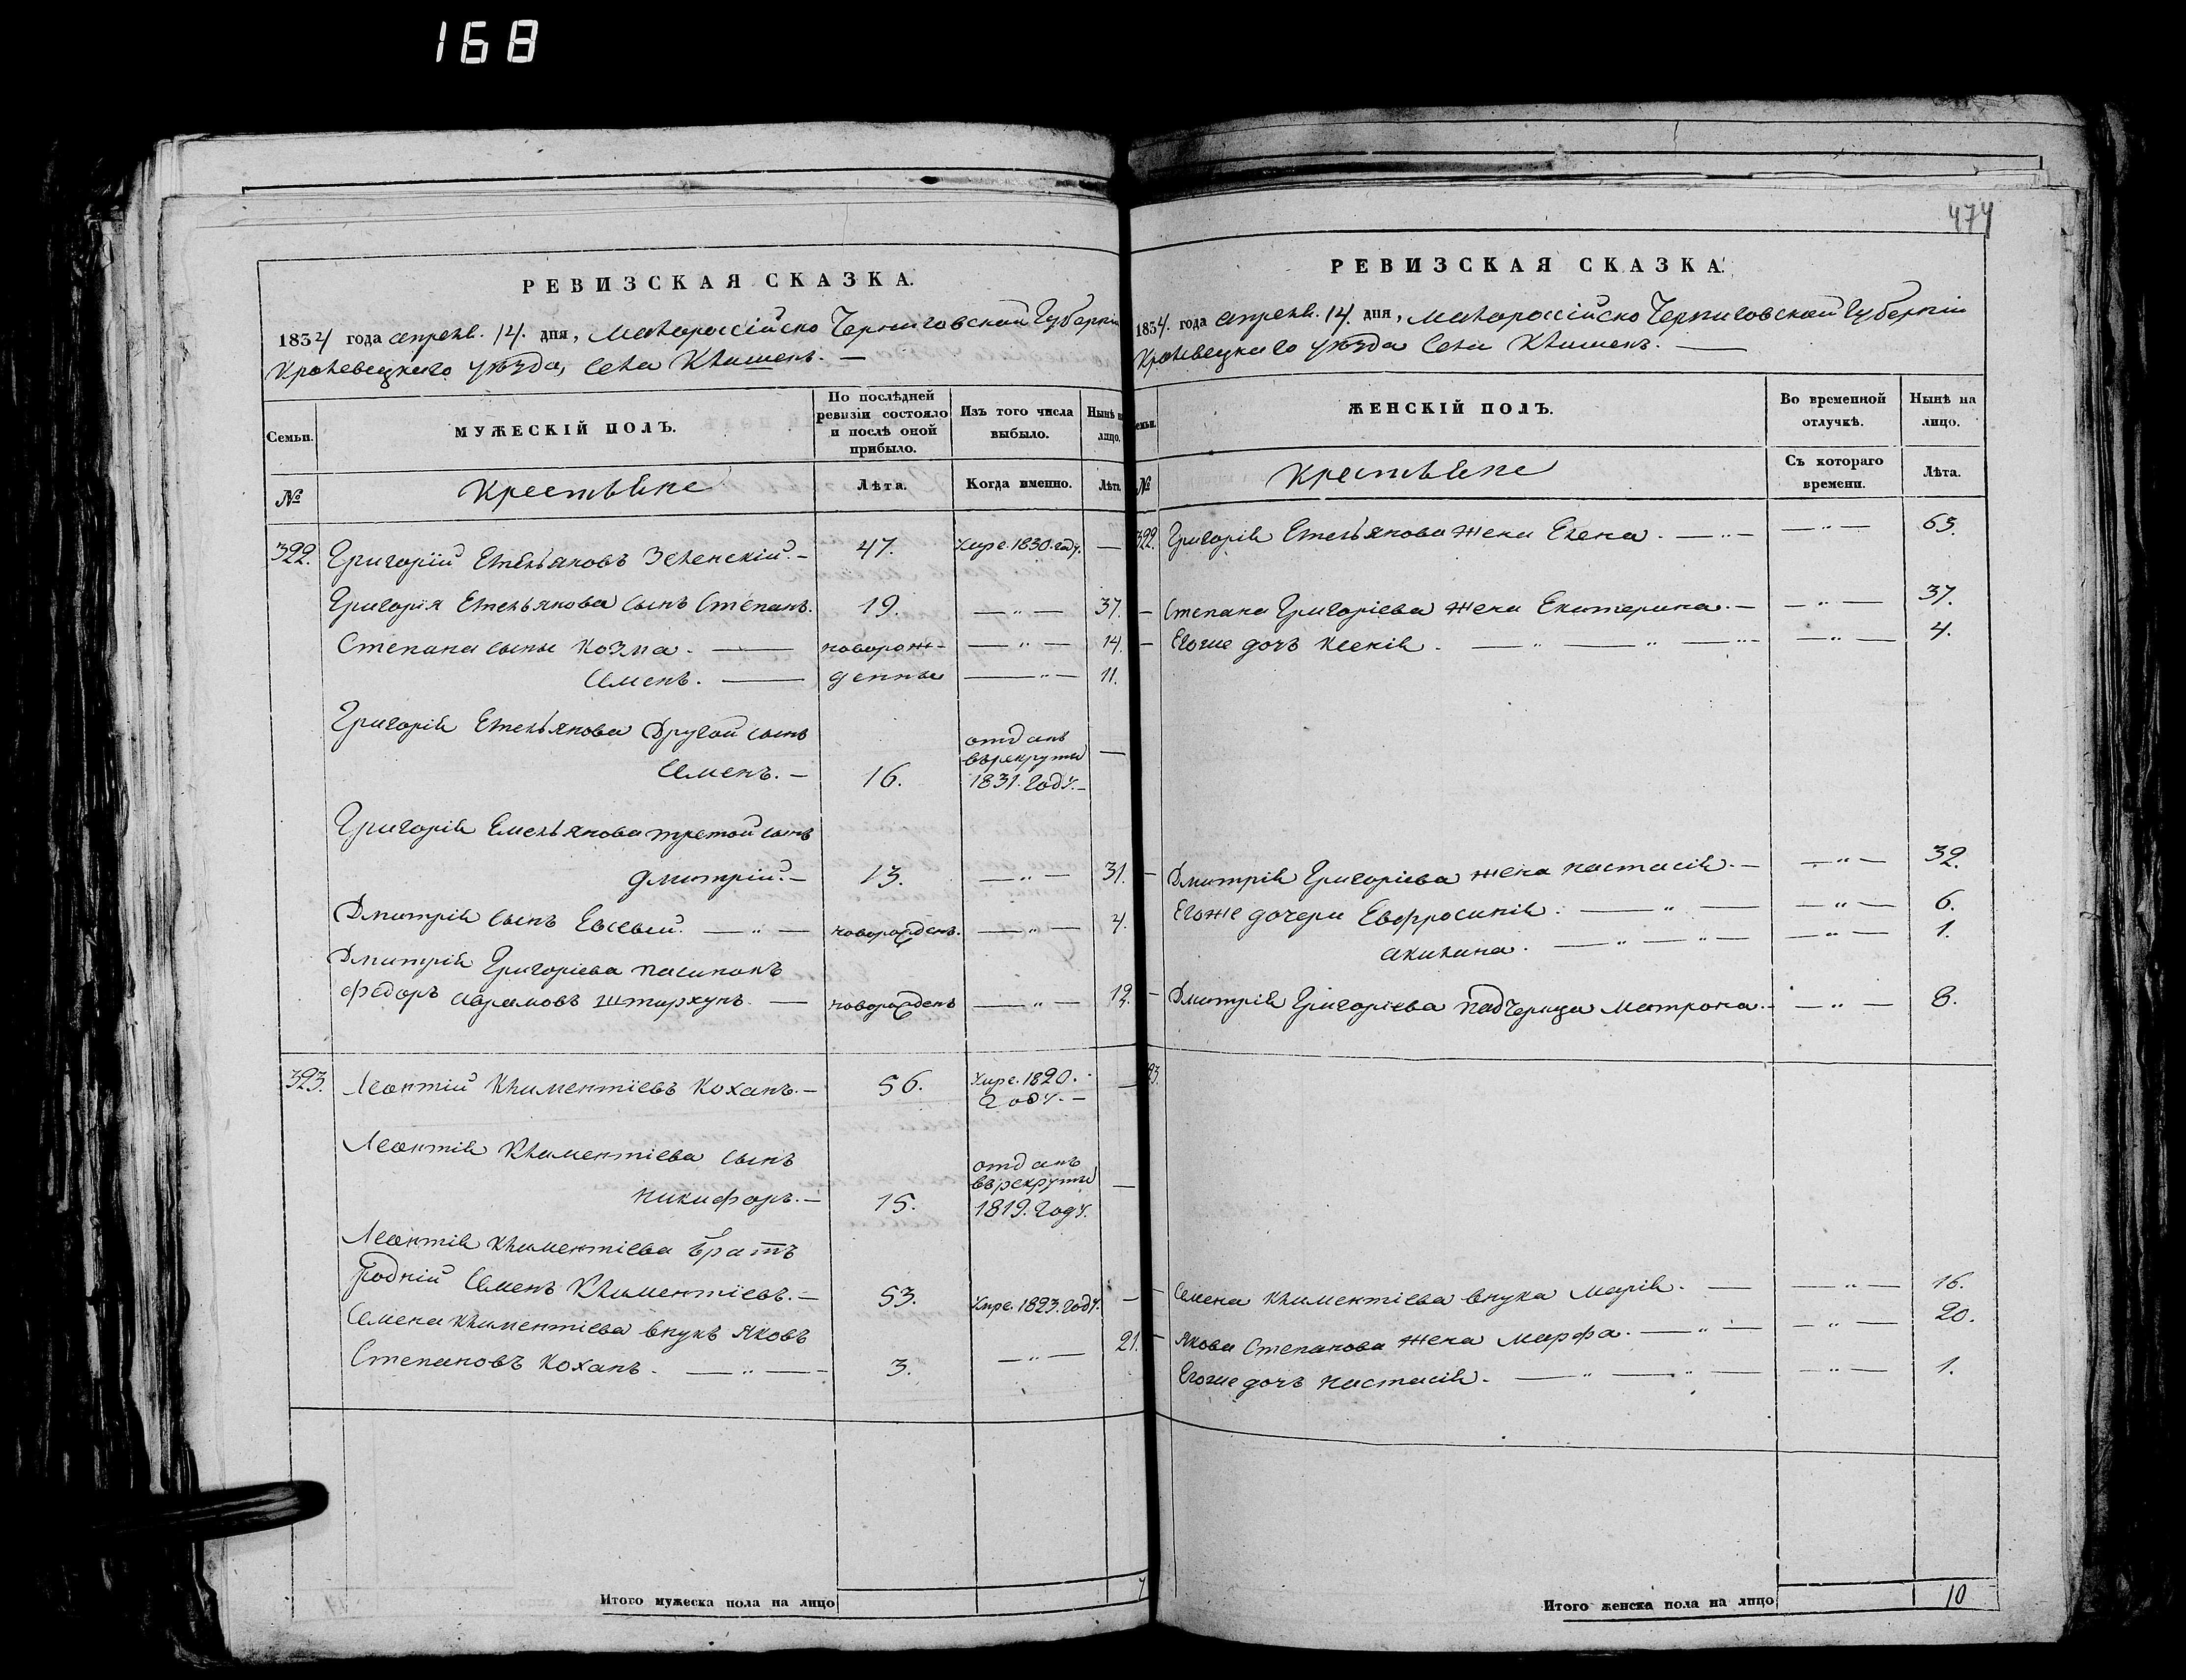 168
474
РЕВИЗСКАЯ СКАЗКА.
1834 года апреля. 14. дня, Малороссійско Черниговской Губерніи
Кролевецкаго уѣзда, Села Клишекъ. —
Семьи.
МУЖЕСКІЙ ПОЛЪ.
По послѣдней ревизіи состояло и послѣ оной прибыло.
Изъ того числа выбыло.
Нынѣ на лицо.
№
Крестьяне
Лѣта.
Когда именно.
Лѣта
322. Григорій Емельяновъ Зеленскій. — 47. Умре. 1830. году. —
Григорія Емельянова сынъ Степанъ. 19. — 〃 — 37.
Степана сыны Козма. — новорож- — 〃 — 14.
Семенъ. — денные — 〃 — 11.
Григорія Емельянова Другой сынъ
Семенъ. — 16. отданъ въ рекруты 1831. Году. — —
Григорія Емельянова третой сынъ
Дмитрій. — 13. — 〃 — 31.
Дмитрія сынъ Евсевій. — 〃 — новорожденъ. — 〃 — 4.
Дмитрія Григоріева пасинокъ
Федоръ Аврамовъ Штархунъ. — новорожденъ — 〃 — 12.
323. Леонтій Климентіевъ Коханъ. — 56. Умре. 1820. Году. — —
Леонтія Климентіева сынъ
Никифоръ. — 15. отданъ въ рекруты 1819. Году. —
Леонтія Климентіева братъ
Родній Семенъ Климентіевъ. — 53. Умре. 1823. Году. —
Семена Климентіева внукъ Яковъ
Степановъ Коханъ. — 〃 — 3. — 〃 — 21.
Итого мужеска пола на лицо 7
РЕВИЗСКАЯ СКАЗКА.
1834. года апреля. 14. дня, Малороссійско Черниговской Губерніи
Кролевецкаго уѣзда Села Клишекъ. —
емьи.
ЖЕНСКІЙ ПОЛЪ.
Во временной отлучкѣ.
Нынѣ на лицо.
№
Крестьяне
Съ котораго времени.
Лѣта.
322. Григорія Емельянова жена Елена. — 〃 — — 〃 — 63.
— Степана Григоріева жена Екатерина. — — 〃 — 37.
— Егоже дочъ Ксенія. — 〃 — 〃 — 〃 — — 〃 — 4.
— Дмитрія Григоріева жена Настасія. — — 〃 — 32.
Егоже дочери Евфросинія. — 〃 — — 〃 — 6.
Акилина. — 〃 — 〃 — — 〃 — 1.
— Дмитрія Григоріева Падчерица Матрона. — — 〃 — 8.
23.
— Семена Климентіева внука Марія. — — 〃 — 16.
— Якова Степанова жена Марфа. — 〃 — — 〃 — 20.
Егоже дочъ Настасія. — 〃 — 〃 — — 〃 — 1.
Итого женска пола на лицо 10